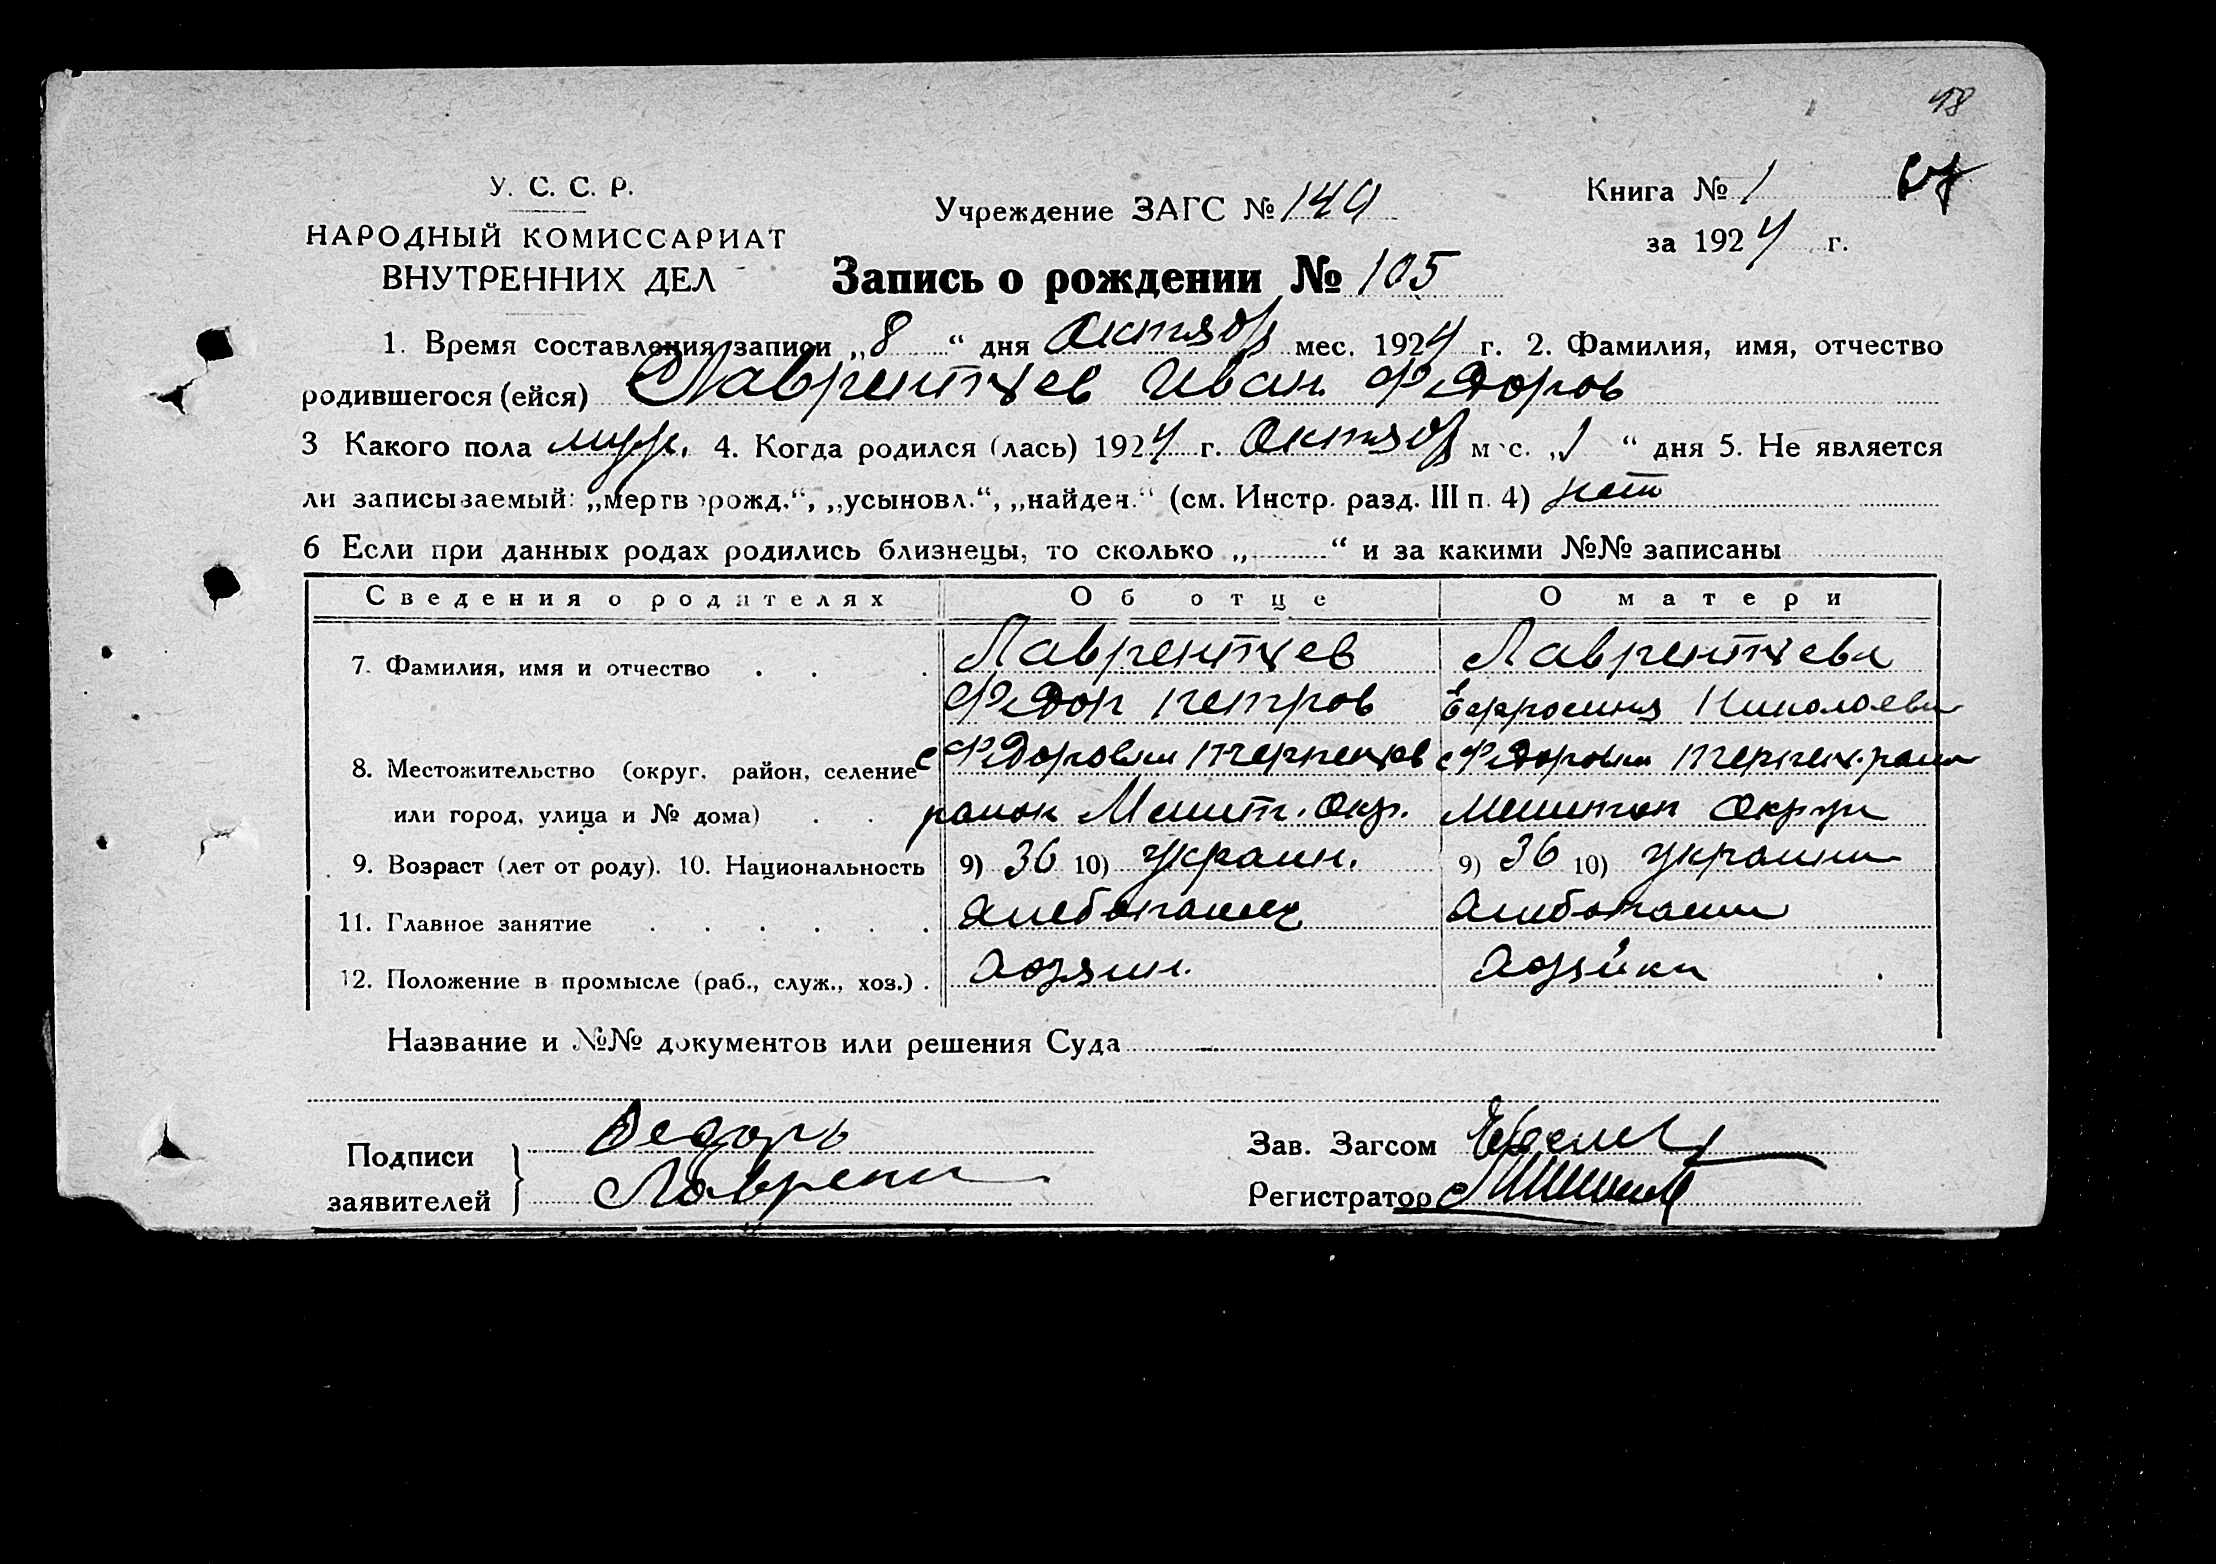 18
У. С. С. Р.
НАРОДНЫЙ КОМИССАРИАТ
ВНУТРЕННИХ ДЕЛ
Учреждение ЗАГС № 149
Книга № 1
за 1924 г.
Запись о рождении № 105
1. Время составления записи „8“ дня Октяб мес. 1924 г. 2. Фамилия, имя, отчество
родившегося (ейся) Лаврентьев Иван Фёдоров
3 Какого пола муж. 4. Когда родился (лась) 1924 г. Октяб мес. „1“ дня 5. Не является
ли записываемый: „мертворожд.“, „усыновл.“, „найден.“ (см. Инстр. разд. III п. 4) нет
6 Если при данных родах родились близнецы, то сколько „ “ и за какими №№ записаны
Сведения о родителях Об отце О матери
7. Фамилия, имя и отчество Лаврентьев Лаврентьева
Фёдор Петров Ефросиния Николаевн
8. Местожительство (округ, район, селение с Фёдоровки с Фёдоровки
или город, улица и № дома) район Мелит. Окр. Округ
9. Возраст (лет от роду). 10. Национальность 9) 36 10) Украин. 9) 36 10) украинк
11. Главное занятие
12. Положение в промысле (раб., служ., хоз.) хозяин. хозяйка
Название и №№ документов или решения Суда
Подписи
заявителей
Федоръ
Лаврент
Зав. Загсом
Регистратор